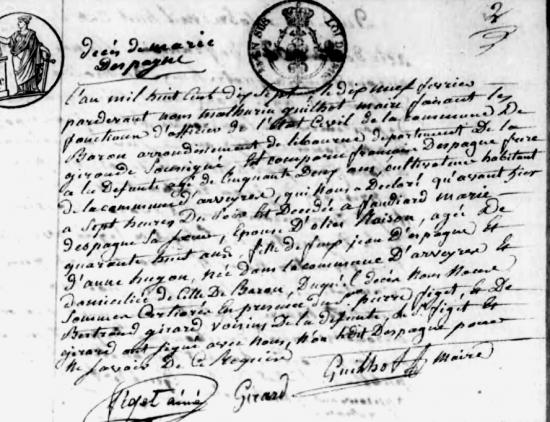 2
décès de marie
Despagne
L'an mil huit cent dix sept le dix neuf fevrier
pardevant nous mathurin guilhot maire faisant les
fonctions d'officier de l'État Civil de la commune De
Baron arrondissement de libourne departement De la
gironde Soussigné Est comparu françois Despagne frere
a la Defunte agé de Cinquante Deux ans, cultivateur habitant
de la commune d'arveyres, qui nous a Declaré qu'avant hier
a Sept heures Du Soir Est Decedé a marie
despagne Sa Soeur, Epouse D' Raison, agée De
quarante huit ans, fille de feux jean despagne Et
d'anne hugon, née dans la commune D'arveyres Et
domiciliée de Cette De Baron, Duquel décès Nous Nous
Sommes Certiorés En presence du Sr pierre piget Et De
Bertrand girard voisins De la defunte, le Sr piget Et
girard ont signé avec Nous, Non ledit Despagne pour
Ne Savoir De Ce Requis
Guilhot Maire
Piget ainé
Girard